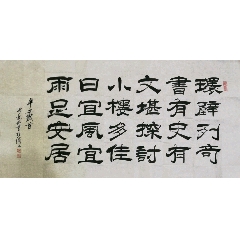 環壁列奇
書有史有
文堪探討
小樓多佳
日宜風宜
雨足安居